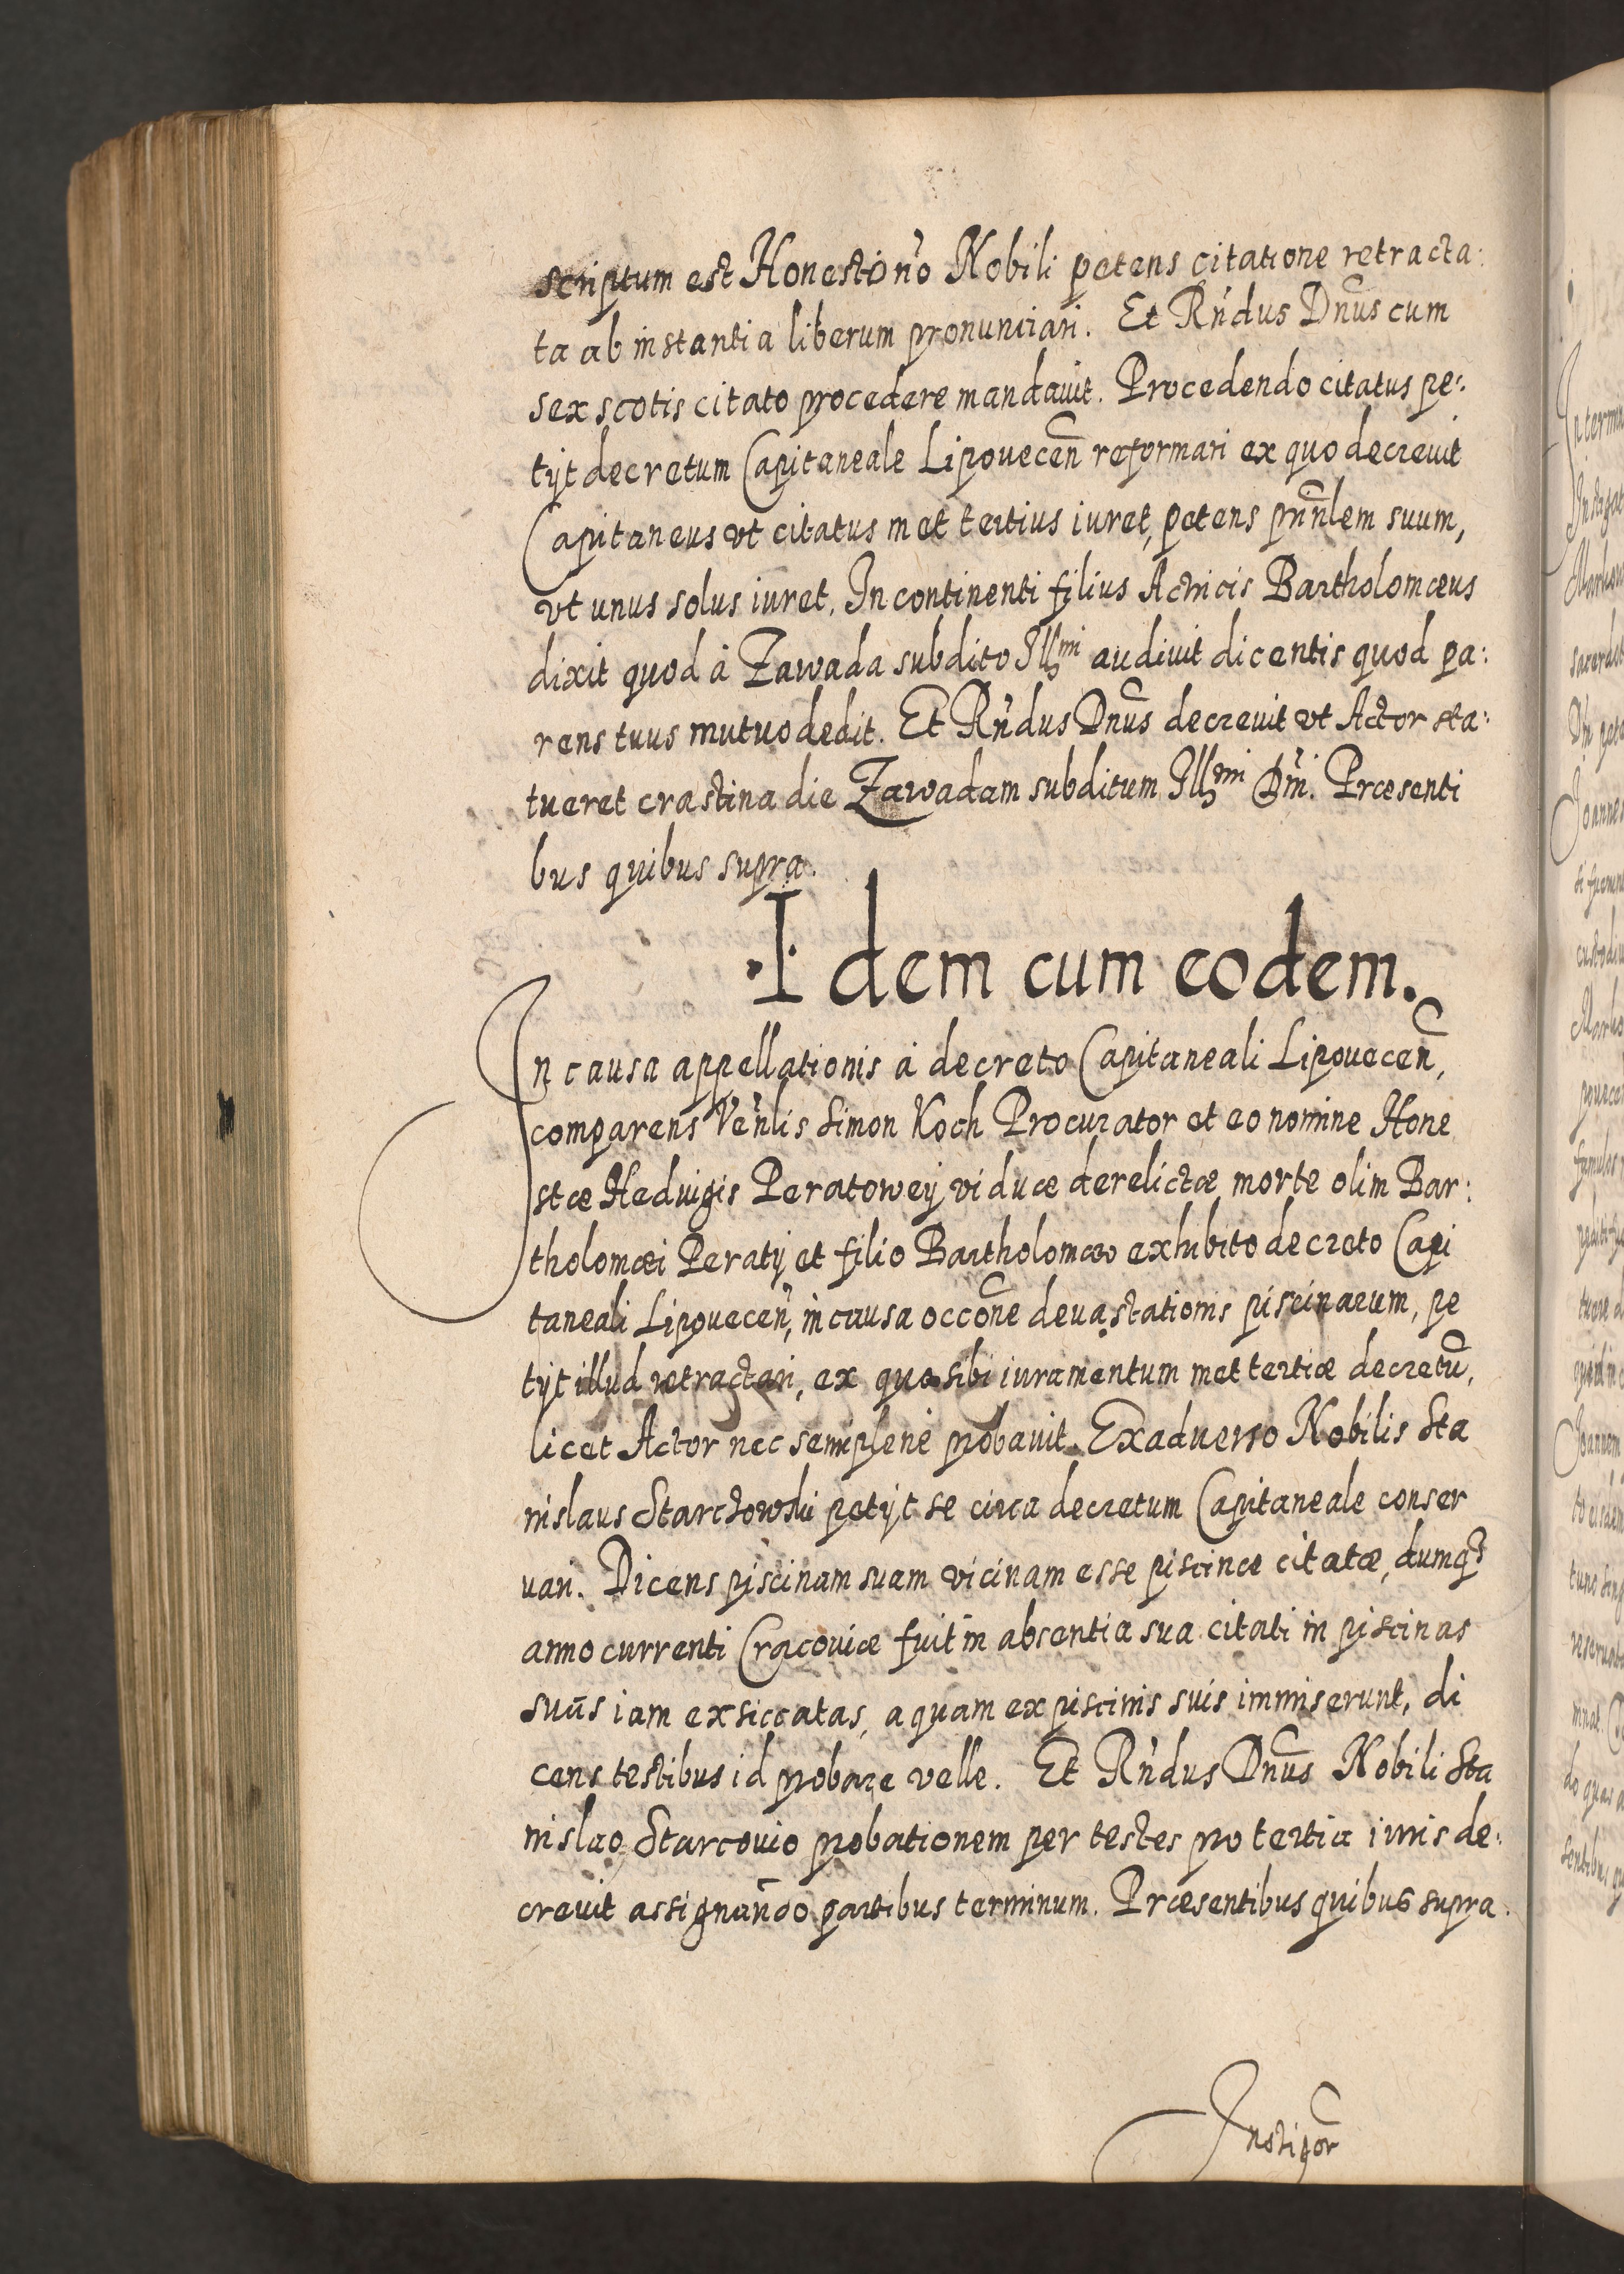 scriptum est Honesto nõ Nobili petens citatione retracta:
ta ab instantia liberum pronunciari. Et Rńdus Dnũs cum
sex scotis citato procedere mandauit. Procedendo citatus pe:
tÿt decretum Capitaneale Lipouecen̄ reformari ex quo decreuit
Capitaneus vt citatus met tertius iuret, petens prnñlem suum,
vt unus solus iuret. In continenti filius Actricis Bartholomæus
dixit quod à Zawada subdito Illmi audiuit dicentis quod pa:
rens tuus mutuo dedit. Et Rńdus Dnũs decreuit vt Actor sta:
tueret crastina die Zawadam subditum Illmi Dm̃. Præsenti
bus quibus supra.
Idem cum eodem.
In causa appellationis à decreto Capitaneali Lipouecen̄,
comparens Veńlis Simon Koch Procurator et eo nomine Hone
stæ Heduigis Peratoweÿ viduæ derelictæ morte olim Bar:
tholomæi Peratÿ et filio Bartholomæo exhibito decreto Capi
taneali Lipouecen̄, in causa occõne deuastationis piscinarum, pe
tÿt illud retractari, ex quo sibi iuramentum met tertiæ decretũ,
licet Actor nec semiplenè probauit. Exaduerso Nobilis Sta
nislaus Starchowski petÿt se circa decretum Capitaneale conser
uari. Dicens piscinam suam vicinam esse piscinæ citatæ, dumq3
anno currenti Cracouiæ fuit in absentia sua citati in piscinas
suas iam exsiccatas, aquam ex piscinis suis immiserunt, di
cens testibus id probare velle. Et Rńdus Dnũs Nobili Sta
nislao Starcouio probationem per testes pro tertia iuris de:
creuit assignando partibus terminum. Præsentibus quibus supra.
Instigor̃